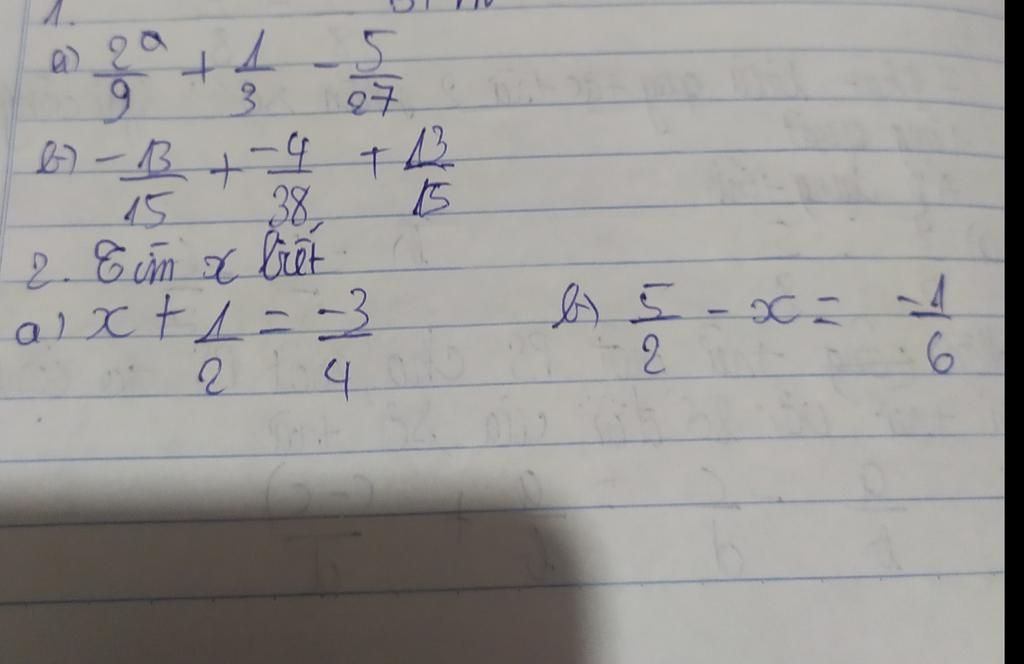 1.
a) 2^a/9 + 1/3 - 5/27
b) -13/15 + -4/38 + 13/15
2. Tìm x biết
a) x + 1/2 = -3/4 b) 5/2 - x = -1/6